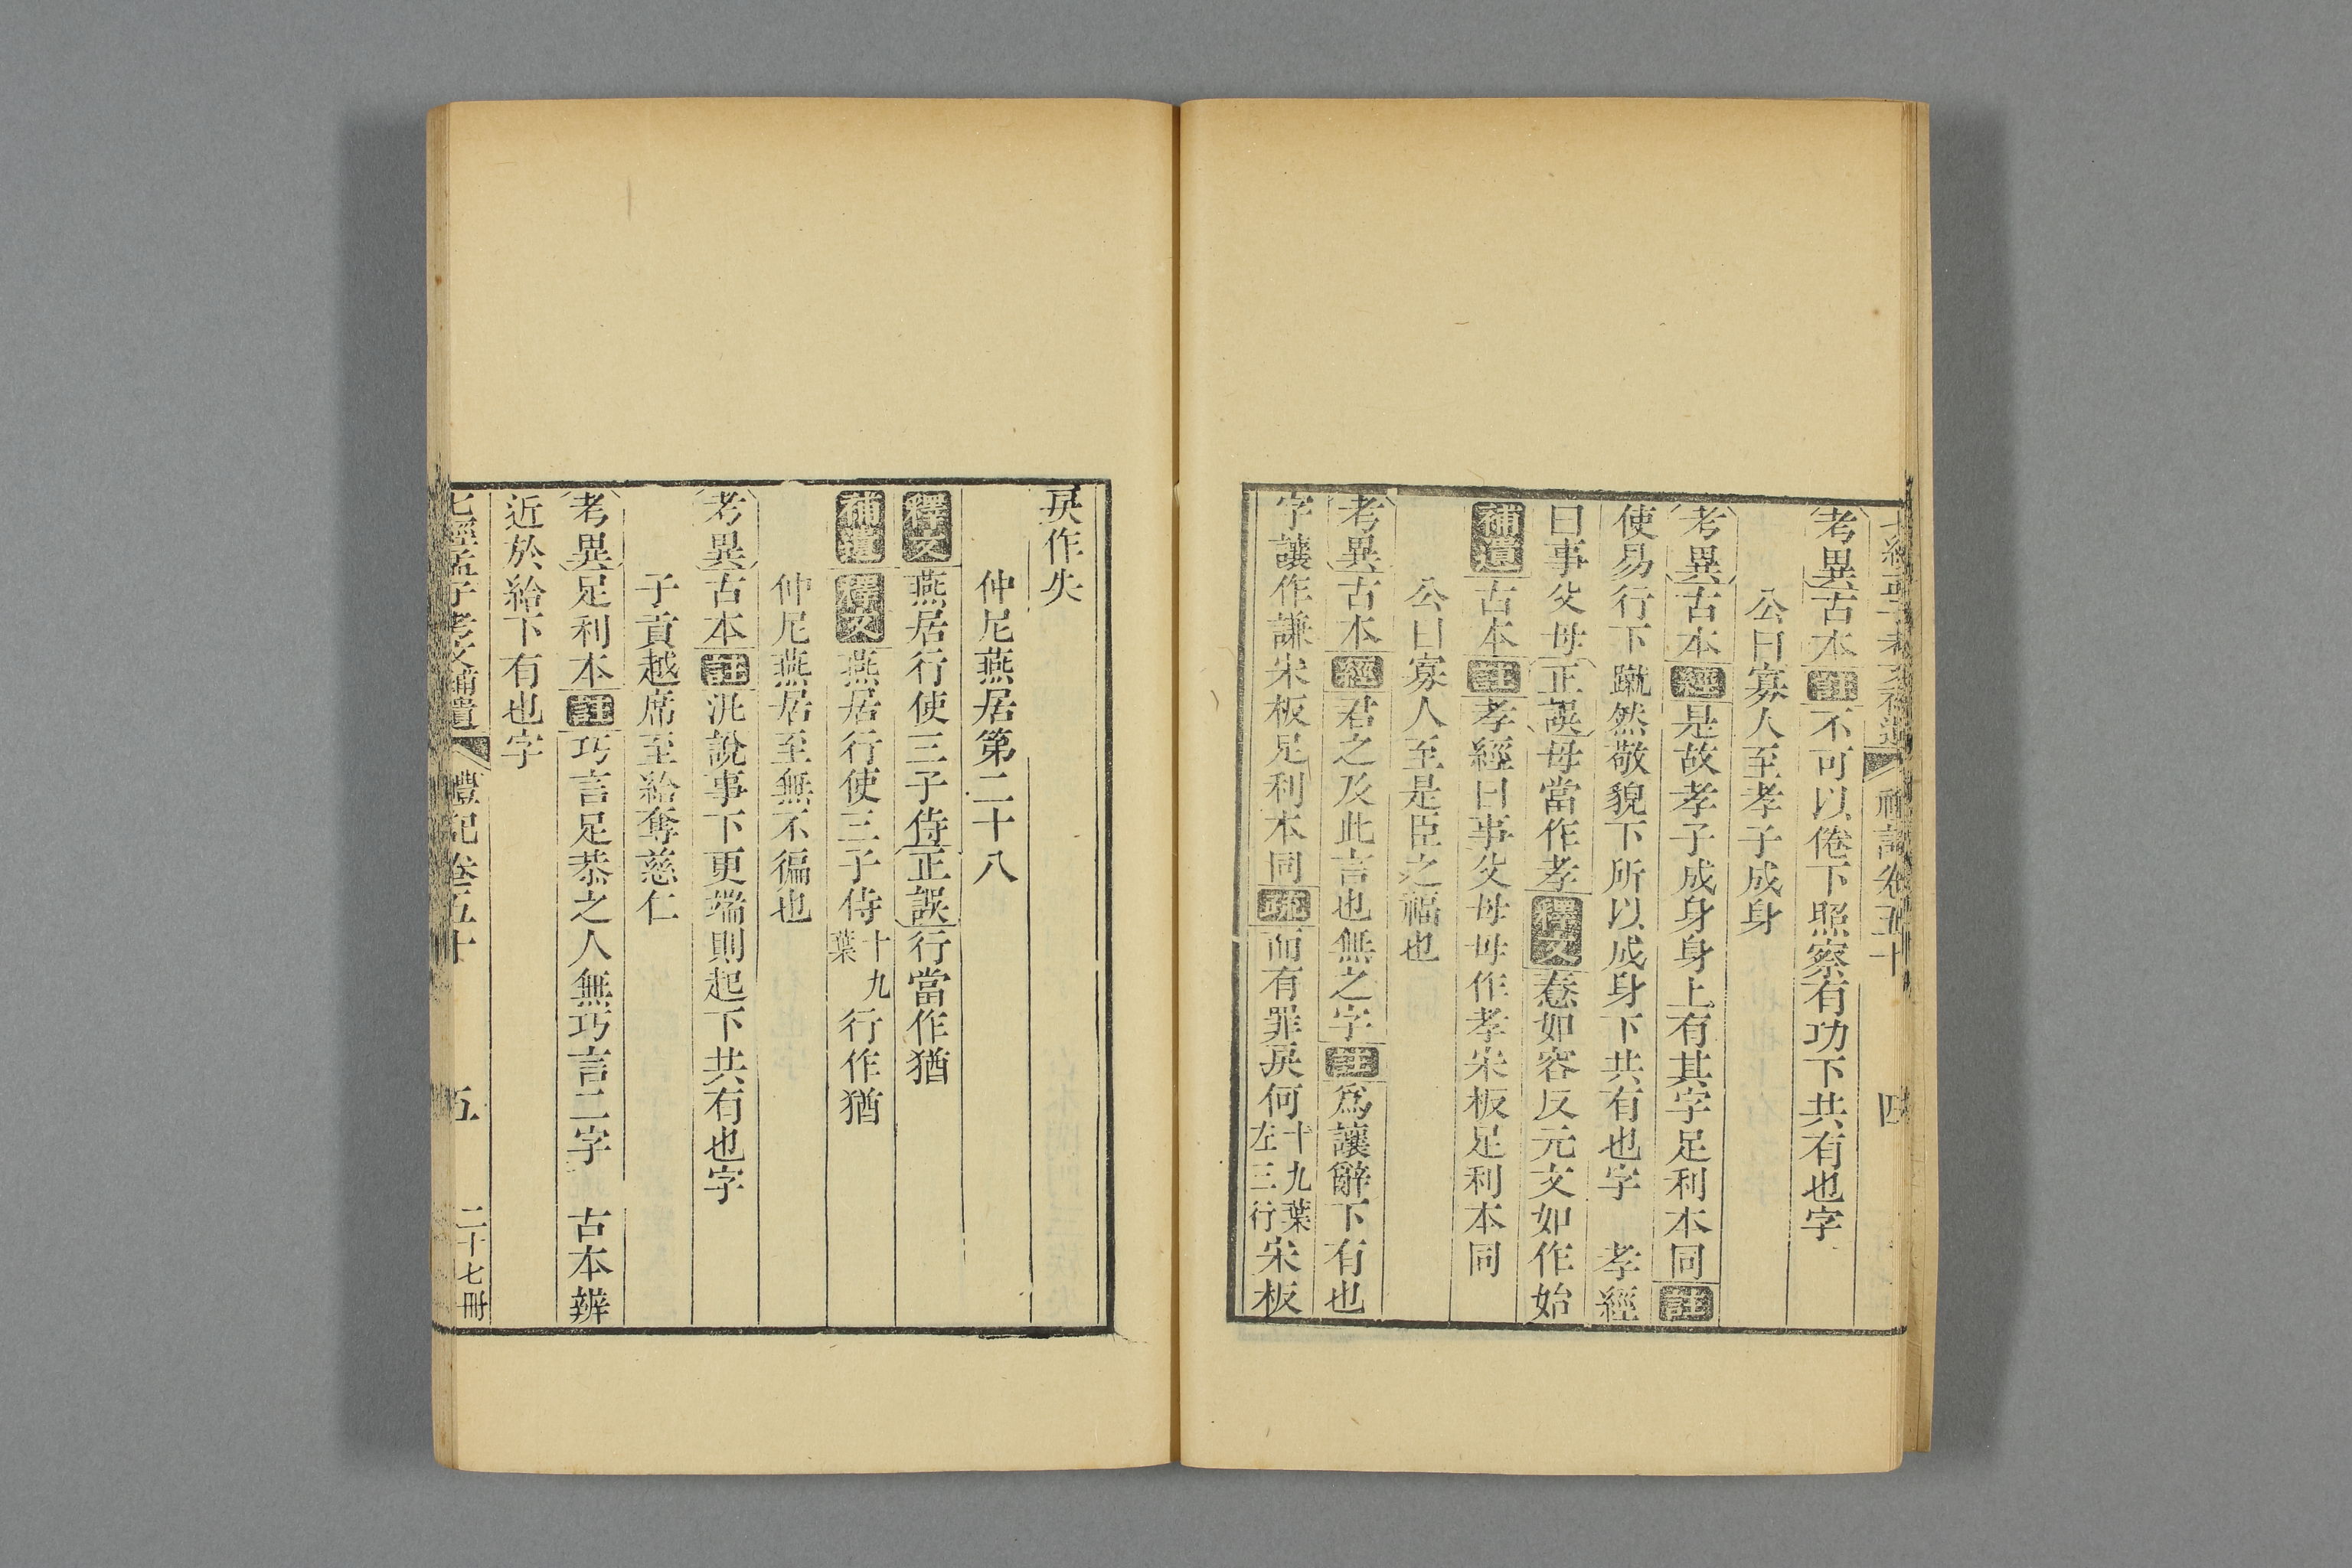 七經孟子考文補遺 禮記卷五十 四
考異古本註不可以倦下照察有功下共有也字
公曰寡人至孝子成身
考異古本經是故孝子成身身上有其字足利本同註
使易行下蹴然敬貌下所以成身下共有也字 孝經
曰事父母正誤母當作孝釋文惷如容反元文如作始
補遺古本註孝經曰事父母母作孝宋板足利本同
公曰寡人至是臣之福也
考異古本經君之及此言也無之字註爲讓辭下有也
字讓作謙宋板足利本同疏而有罪戾何十九葉左三行宋板
戾作失
仲尼燕居第二十八
釋文燕居行使三子侍正誤行當作猶
補遺釋文燕居行使三子侍十九葉行作猶
仲尼燕居至無不徧也
考異古本註汎說事下更端則起下共有也字
子貢越席至給奪慈仁
考異足利本註巧言足恭之人無巧言二字 古本辨
近於給下有也字
七經孟子考文補遺 禮記卷五十 五 二十七冊